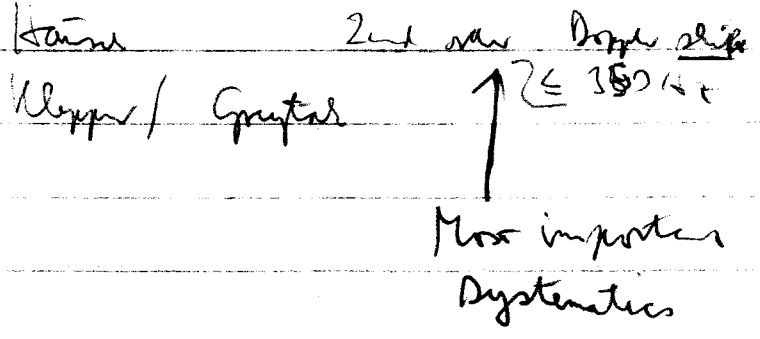 Hänsel 2nd order Doppler shift
Kleppner / Greytak ≤ 350 Hz
Most important
Systematics